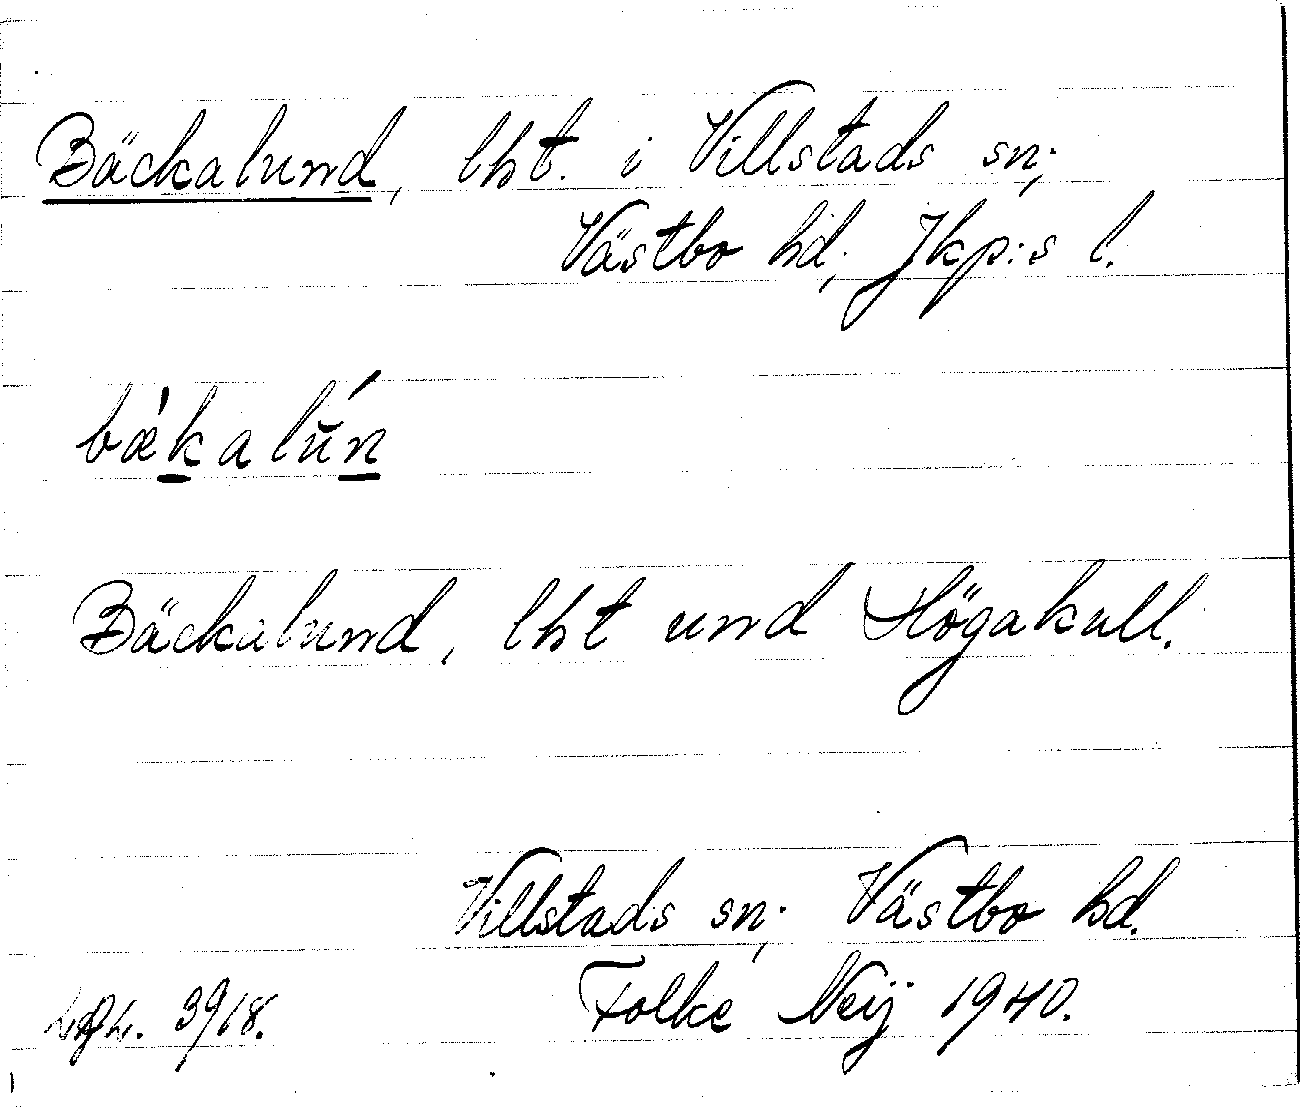 Bäckalund, lht. i Villstads sn;
Västbo hd; Jkp:s l.
bæ̀kalŭ́n
Bäckalund, lht und Högakull.
Villstads sn; Västbo hd.
Folke Neij 1940.
3918.